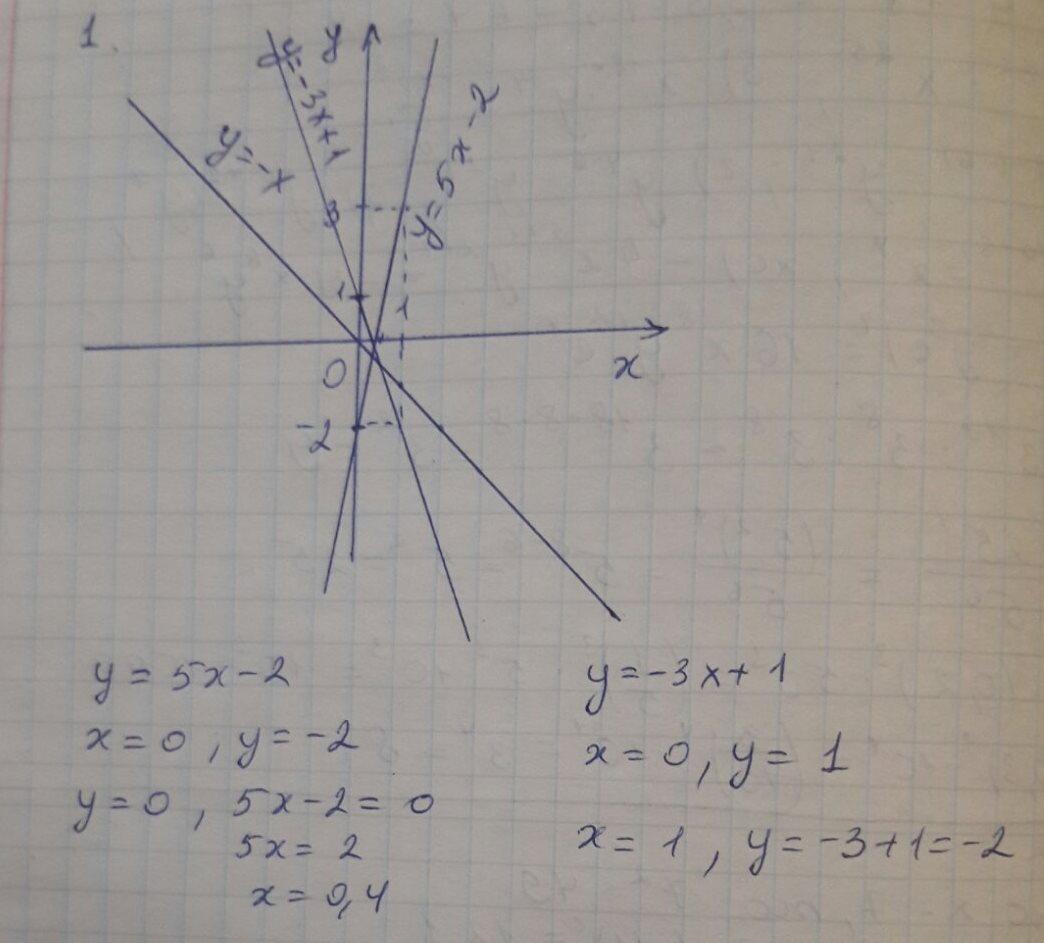 1.
y
y=-3x+1
y=-x
y=5x-2
3
1
1
0
x
-2
y=5x-2
x=0, y=-2
y=0, 5x-2=0
5x=2
x=0,4
y=-3x+1
x=0, y=1
x=1, y=-3+1=-2